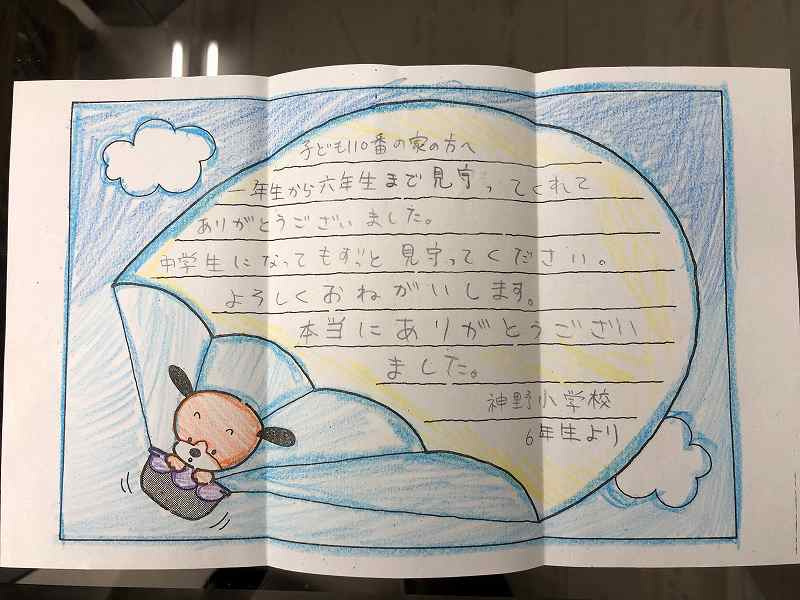 子ども110番の家の方へ
一年生から六年生まで見守ってくれて
ありがとうございました。
中学生になってもずっと見守ってください。
よろしくおねがいします。
本当にありがとうござい
ました。
神野小学校
6年生より